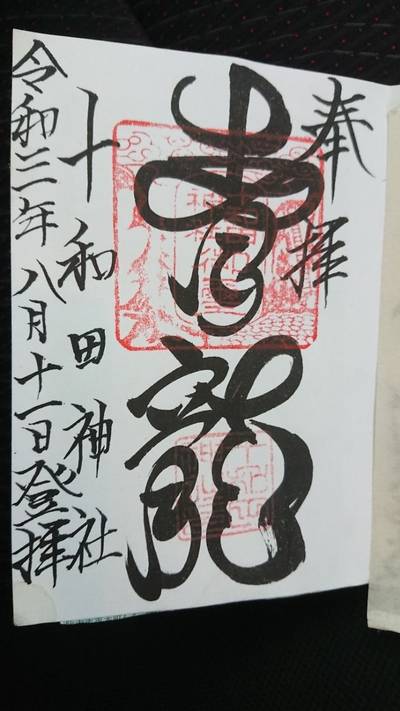 奉拝
青龍
十和田神社
令和三年八月十一日登拝